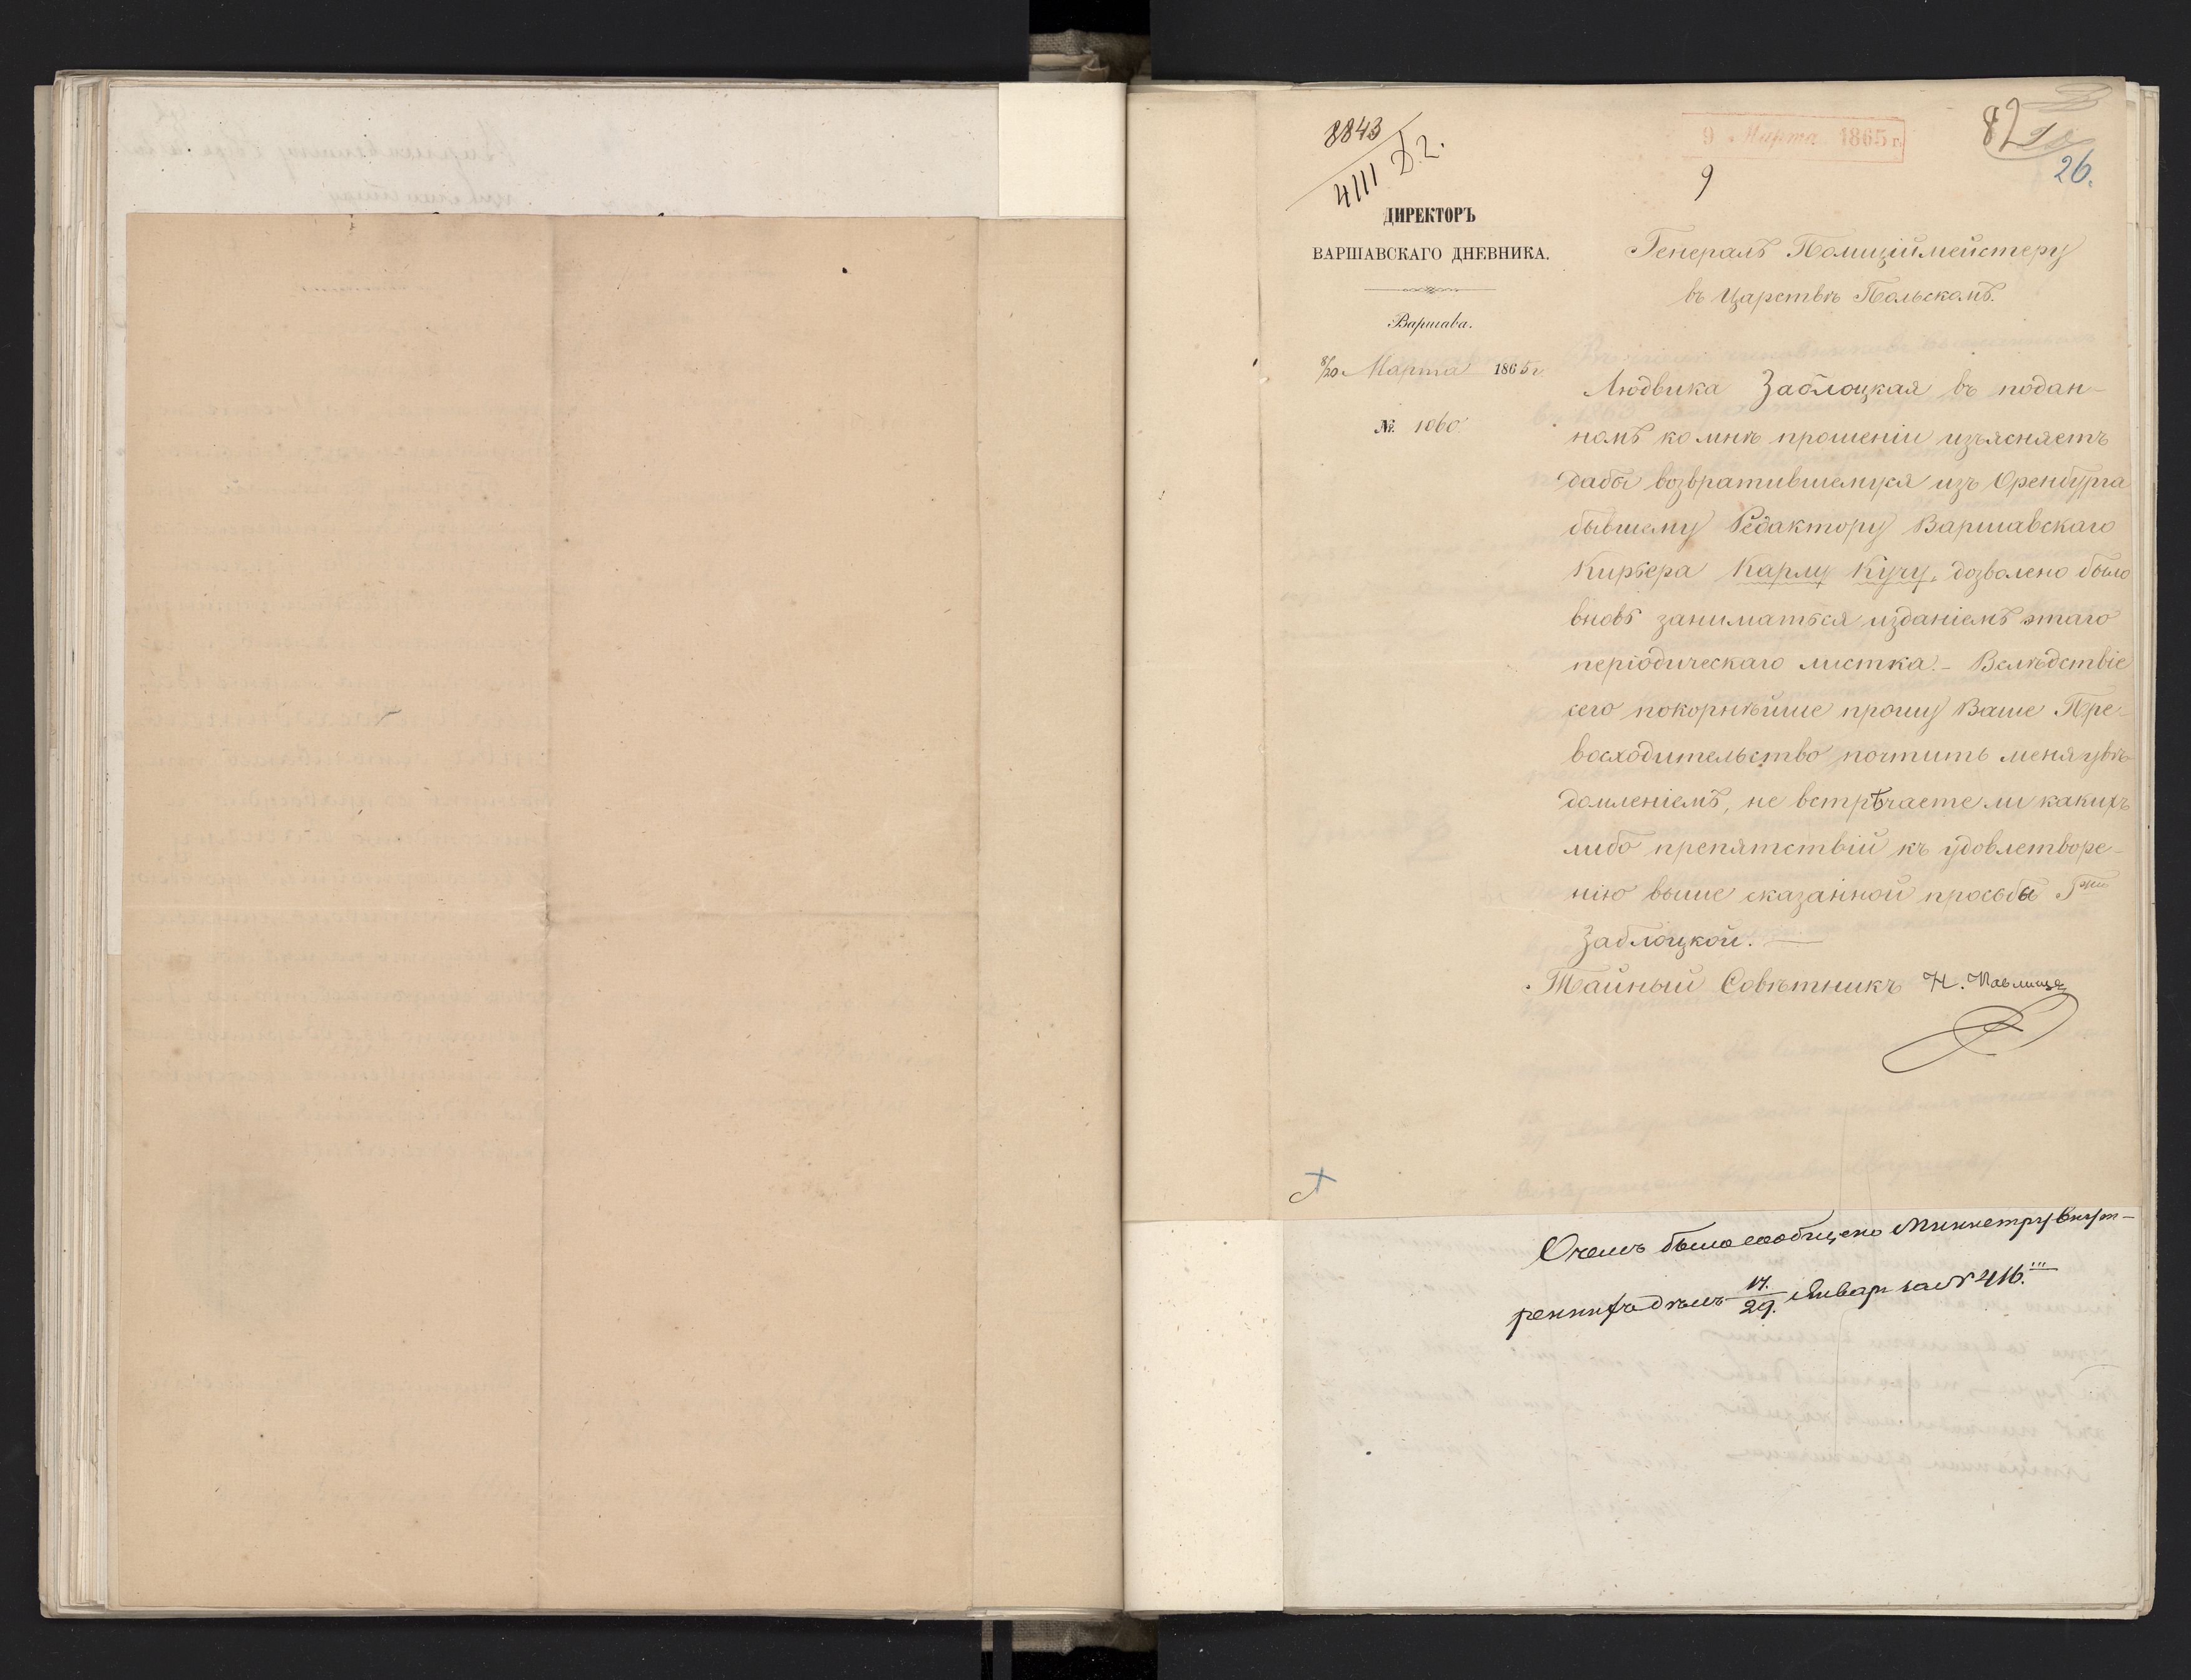 8843
4111 Д 2.
9 Марта 1865 г.
9
82
26.
ДИРЕКТОРЪ
ВАРШАВСКАГО ДНЕВНИКА.
Варшава.
8/20 Марта 1865 г.
№ 1060
Генералъ Полиціймейстеру
въ Царствѣ Польскомъ.
Людвика Заблоцкая въ подан-
номъ ко мнѣ прошеніи изъясняетъ
дабы возвратившемуся изъ Оренбурга
бывшему Редактору Варшавскаго
Курьера Карлу Кучу, дозволено было
вновь заниматься изданіемъ этаго
періодическаго листка. - Вслѣдствіе
сего покорнѣйше прошу Ваше Пре-
восходительство почтить меня увѣ-
домленіемъ, не встрѣчаете ли какихъ
либо препятствій къ удовлетворе-
нію выше сказанной просьбы Г-жи
Заблоцкой. —
Тайный Совѣтникъ Н. Павлищев
О чемъ было сообщено Министру Внут-
реннихъ дѣлъ 17./29. Январ за № 416.